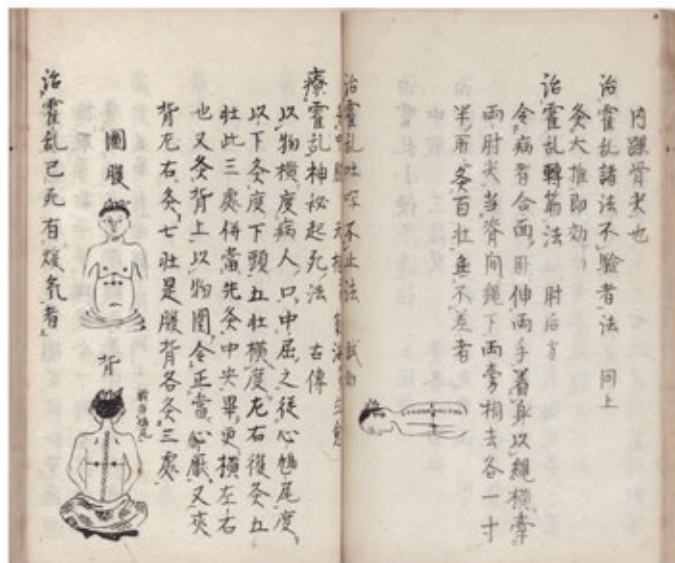 内踝骨尖也
治霍乱諸法不驗者法 同上
灸大推即効
治霍乱轉筋法 肘后方
令病者合面卧伸兩手著身以繩橫牽
兩肘尖當脊間繩下兩旁相去各一寸
半所灸百壯無不差者
治霍乱吐
不止法
療霍乱神秘起死法 古傳
以物橫度病人口中屈之從心鳩尾度
以下灸度下頭五壯橫度左右復灸五
壯此三處併當先灸中央畢更橫左右
也又灸背上以物圍令正當心厭又夾
背左右灸七壯是腹背各灸三處
圖腹
背
治霍乱已死有煖氣者